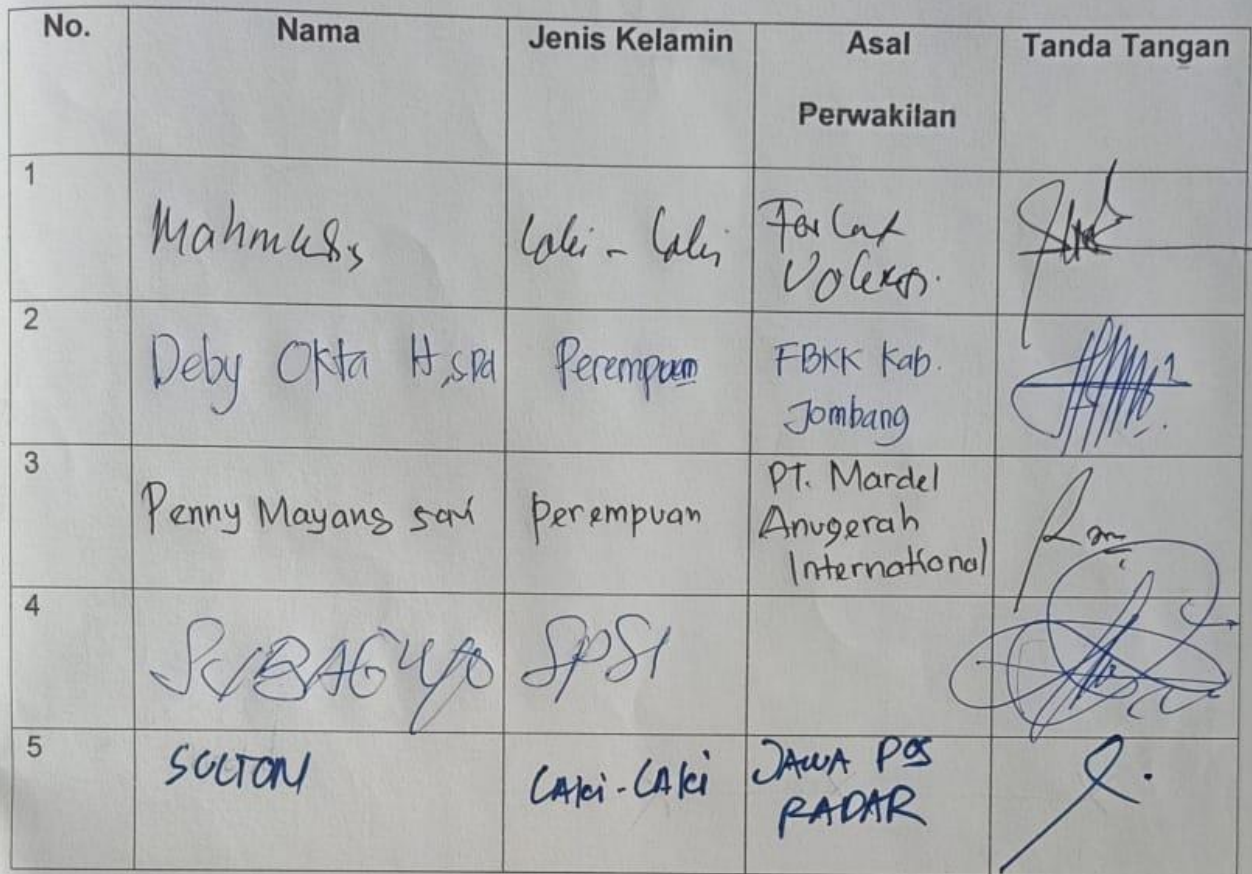 No. Nama Jenis Kelamin Asal Tanda Tangan
Perwakilan
1
Laki - Laki
2
Deby Okta H, SPd Perempuan FBKK Kab.
Jombang
3
Penny Mayang sari perempuan PT. Mardel
Anugerah
International
4
SUBAGYO SPSI
5
SULTON LAki-LAki JAWA POS
RADAR